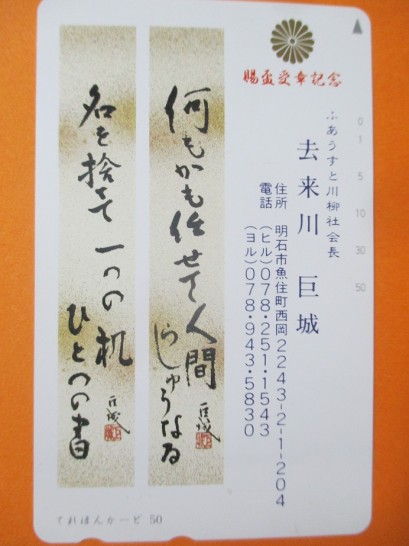 賜盃受章記念
ふあうすと川柳社会長
去来川 巨城
住所 明石市魚住町西岡2243-2-1-204
電話 (ヒル)078・251・1543
(ヨル)078・943・5830
0
1
5
10
30
50
何もかも任せて人間らしゅうなる
巨城
名を捨てて 一つの机 ひとつの書
巨城
てれほんかーど 50